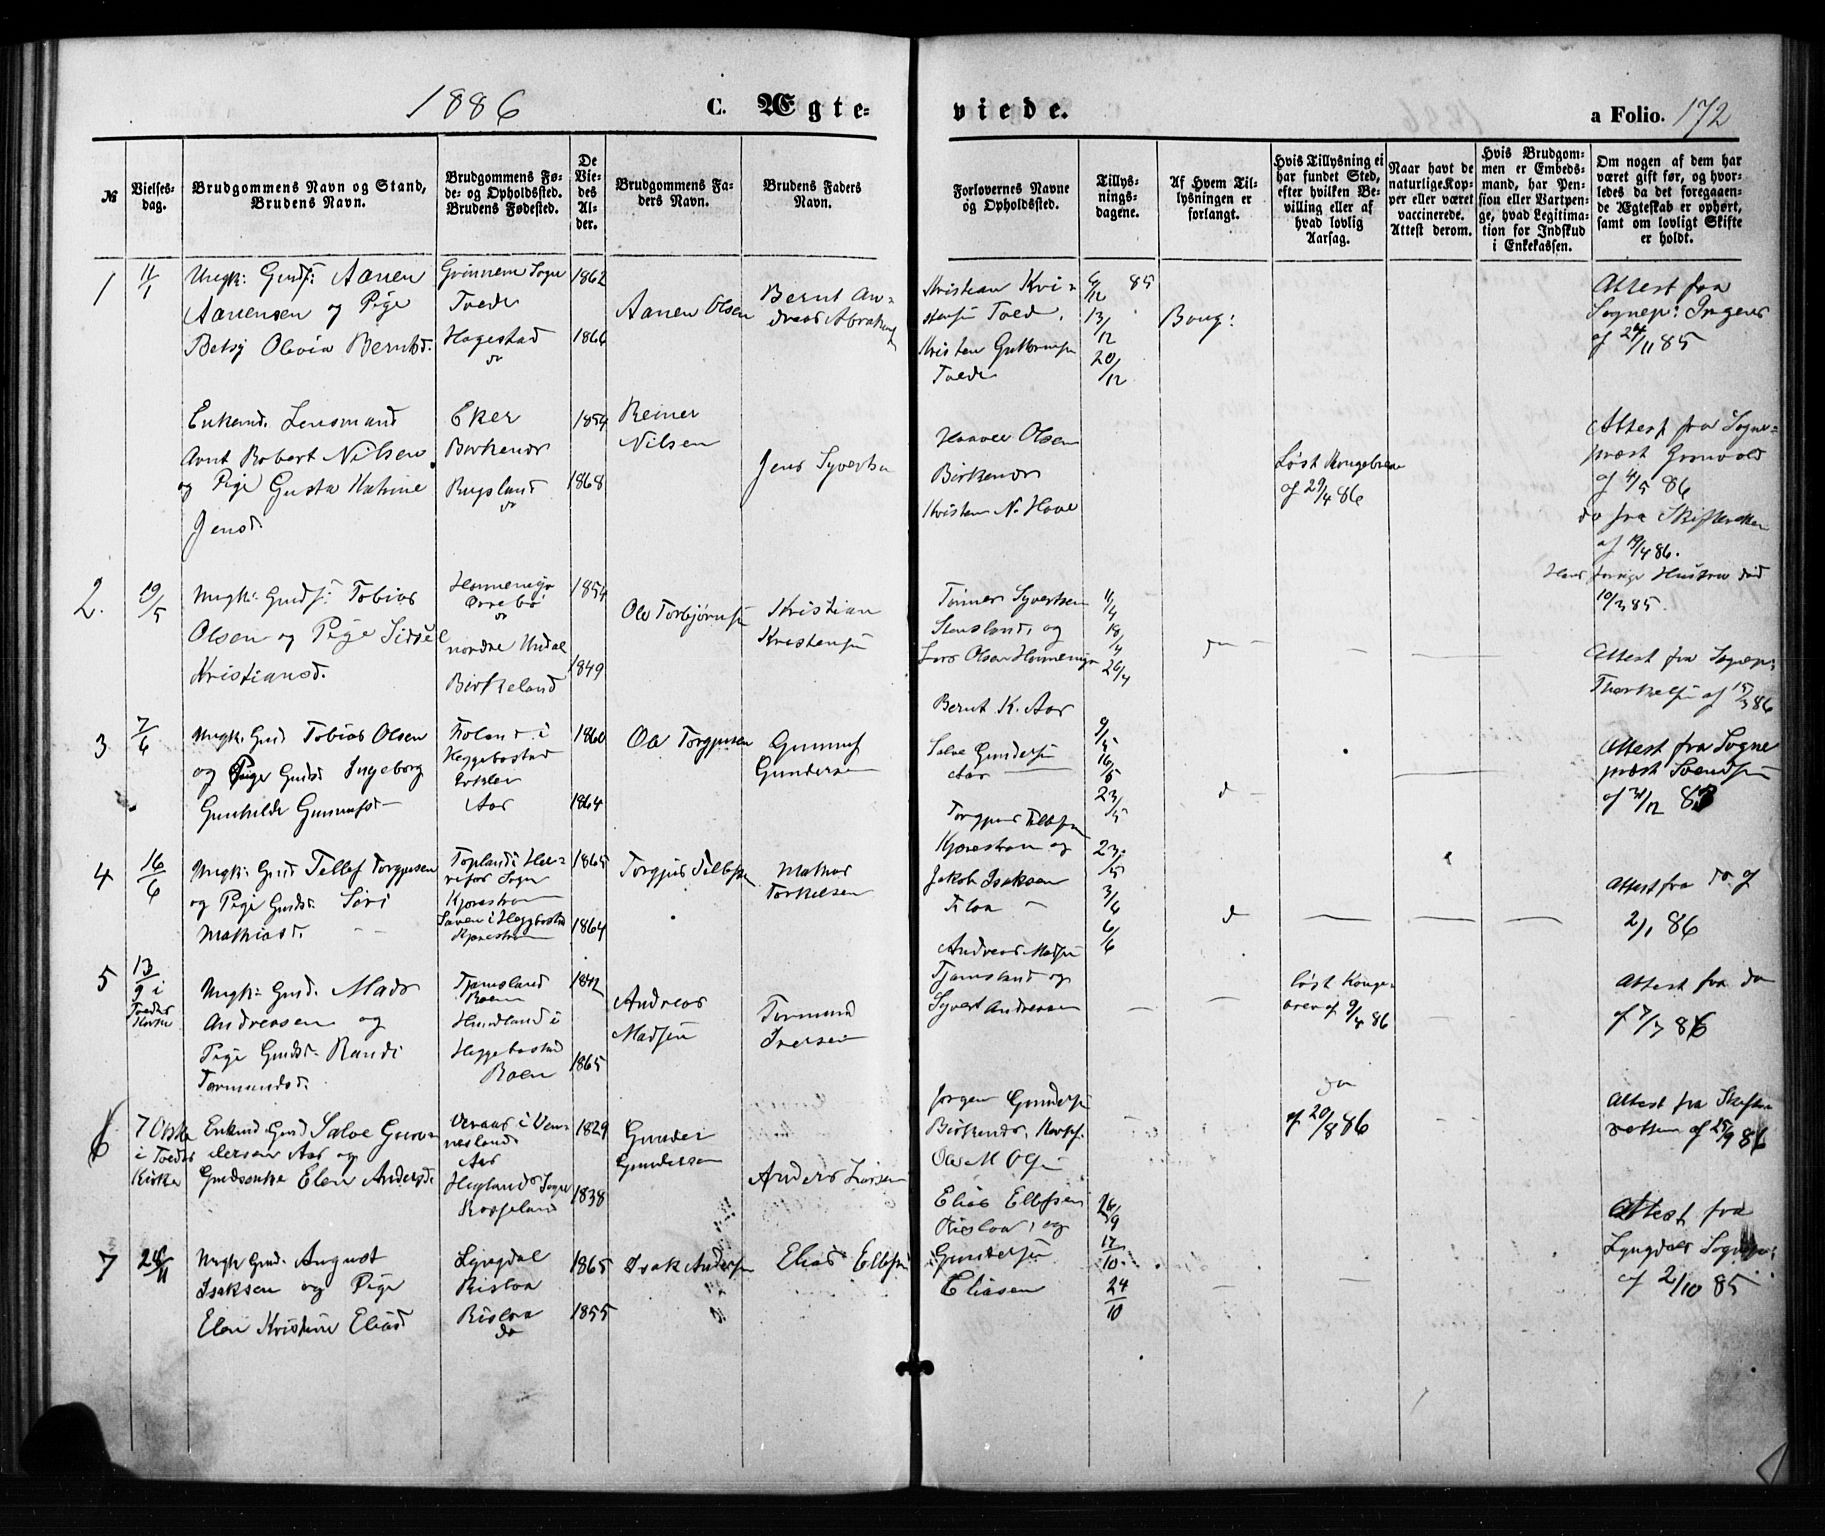 1886 C. Ægte-
viede. a Folio. 172
№
Vielses-
dag.
Brudgommens Navn og Stand,
Brudens Navn.
Brudgommens Fø-
de- og Opholdssted.
Brudens Fødested.
De
Vie-
des
Al-
der.
Brudgommens Fa-
ders Navn.
Brudens Faders
Navn.
Forlovernes Navne
og Opholdssted.
Tillys-
nings-
dagene.
Af Hvem Til-
lysningen er
forlangt.
Hvis Tillysning ei
har fundet Sted,
efter hvilken Be-
villing eller af
hvad lovlig
Aarsag.
Naar havt de
naturlige Kop-
per eller været
vaccinerede.
Attest derom.
Hvis Brudgom-
men er Embeds-
mand, har Pen-
sion eller Vartpen-
ge, hvad Legitima-
tion for Indskud
i Enkekassen.
Om nogen af dem har
været gift før, og hvor-
ledes da det foregaaen-
de Ægteskab er ophørt,
samt om lovligt Skifte
er holdt.
1
11/1
Ungk: Gmdf: Aanen
Aanensen og Pige
Betsy Olevia Berntsd.
Grinnem Sogn
Tvede
Hagestad
do
1862
1866
Aanen Olsen
Bernt An-
dreas
Kristian Kri-
stensen Tved,
Kristen
Tvede
6/12 85
13/12
20/12
Attest fra
Sognep:
af 24/11 85
Enkemd. Lensmand
Arnt Robert Nilsen
og Pige Gusta Katrine
Jensd.
Eker
Birkenes
Rugsland
do
1854
1868
Reiner
Nilsen
Jens Syvertsen
Haavel Olsen
Birkenes
Kristen N. Hove
Løst Kongebrev
af 29/4 86
Attest fra Sogne-
præst
af 4/5 86
do fra Skifteretten
af 19/4 86.
Hans forrige Hustru død
10/3 85.
2.
19/5
Ungk: Gmdf: Tobias
Olsen og Pige Sidsel
Kristiansd.
do
nordre Undal
Birkeland
1854
1849
Ole Torbjørnsen
Kristian
Kristensen
Tønnes Syvertsen
Stensland, og
Lars Olsen
11/4
18/4
26/4
Attest fra Sognep:
Thorkelsen af 15/3 86
3
7/6
Ungk. Gmd Tobias Olsen
og Pige Gmdsd Ingeborg
Gunhilde Gunnufsd
i
Heggebostad
Aas
1860
1864
Ole Torgjusen
Gunnuf
Gundersen
Bernt K. Aas
Salve Gundersen
Aas
9/5
16/5
23/5
d
Attest fra Sogne
præst Svendsen
af 31/12 83
4
16/6
Ungk: Gmd Tellef Torgjusen
og Pige Gmdsd. Siri
Mathiasd.
Topland i Her-
refos Sogn
Kjorestrøm
i Heggebostad
Kjorestrøm
1865
1864
Torgjus Tellefsen
Mathias
Torkelsen
Torgjus Tellefsen
Kjorestrøm og
Jakob Isaksen
23/5
3/6
6/6
d
Attest fra do af
2/1 86
5
13/9 i
Tvedes
Kirke
Ungk: Gmd. Mads
Andreasen og
Pige Gmdsd. Randi
Tormundsd.
Tjomsland
Boen
Hundland i
Heggebostad
Boen
1842
1865
Andreas
Madsen
Tormund
Iversen
Andreas Madsen
Tjomsland og
Syvert Andreasen
løst Konge-
brev af 9/4 86
Attest fra do
af 7/7 86
6
i Tvedes
Kirke
Enkmd Gmd Salve Gun-
dersen Aas og
Gmdsenke Elen Andersd.
i Ven-
nesland
Aas
Heglands Sogn
1829
1838
Gunder
Gundersen
Anders Larsen
Jørgen Gundersen
Birkenes,
do
af 20/8 86
Attest fra Skifte-
retten af 25/9 86
7
Ungk Gmd. August
Isaksen og Pige
Elen Kristine Eliasd
Lyngdal
Risløa
Risløa
do
1865
1855
Isak Andersen
Elias Ellefsen
Elias Ellefsen
Risløa, og
Gundersen
Eliasen
26/9
17/10
24/10
Attest fra
Lyngdals Sognep:
af 2/10 85